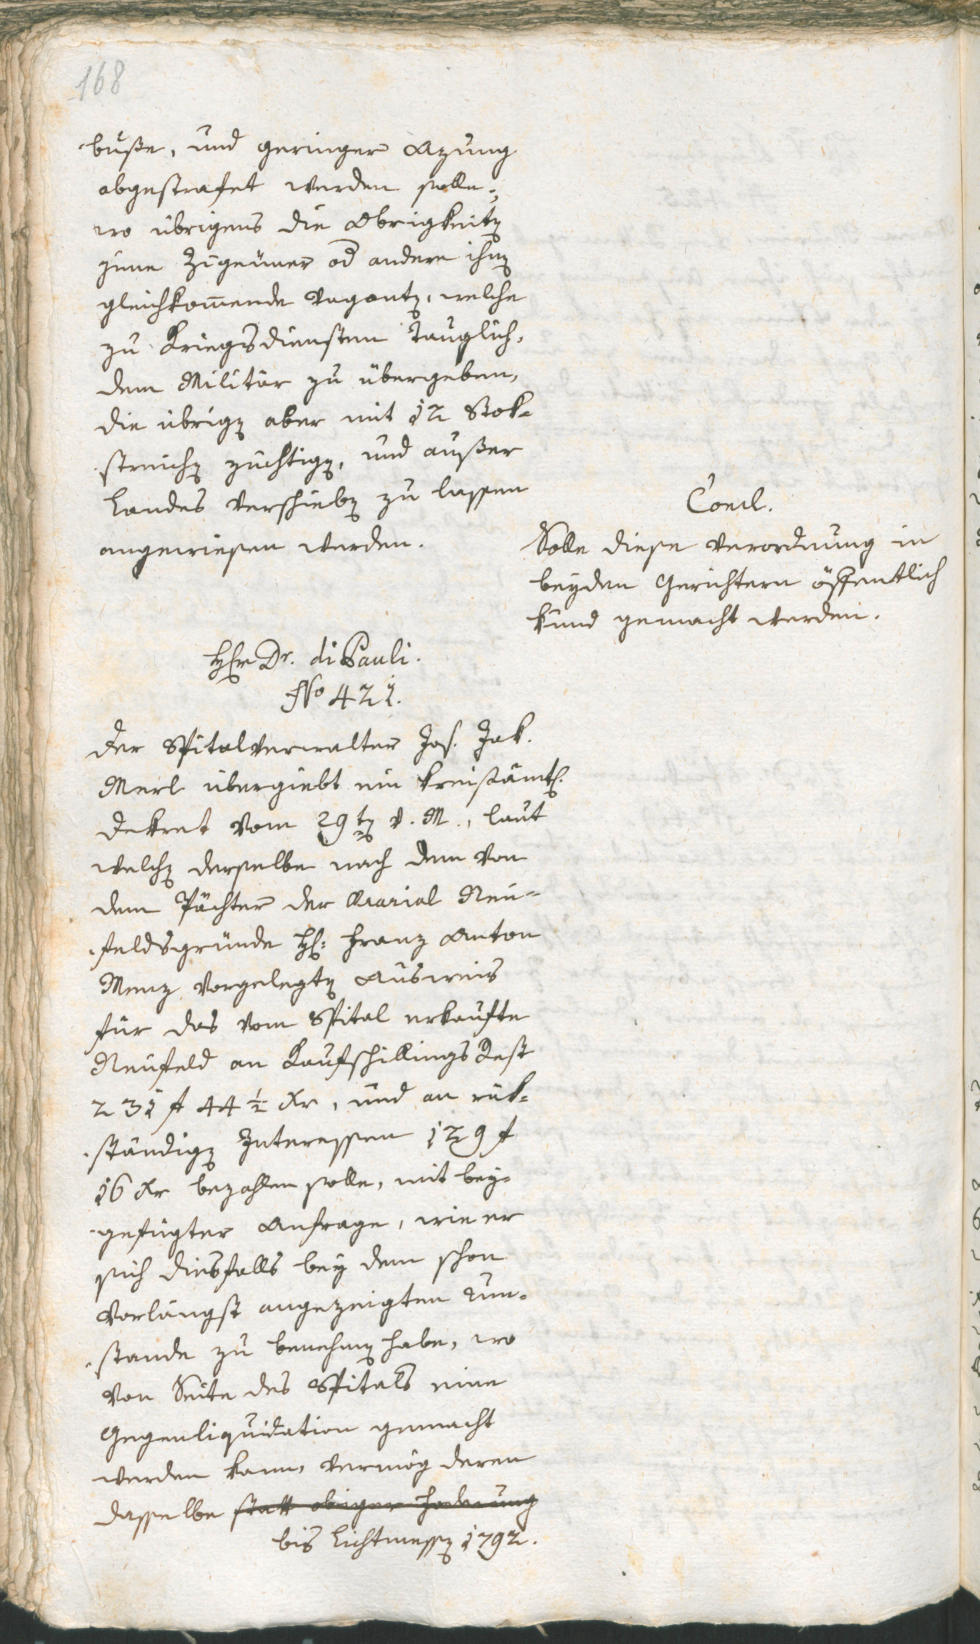 168
buße, und geringer Azung
abgestrafet werden solle;
wo übrigens die Obrigkeiten
jene Zigeuner od andere ihnen
gleichkommende Vaganten, welche
zu Kriegsdiensten tauglich,
dem Militär zu übergeben,
die übrigen aber mit 12 Stok-
streichen züchtigen, und außer
Landes verschieben zu lassen
angewiesen werden.
Concl.
Solle diese Verordnung in
beyden Gerichtern öffentlich
kund gemacht werden.
Hr Dr. di Pauli.
No 421.
Der Spitalverwalter Jos. Jak.
Merl übergiebt ein kreisämtl.
Dekret vom 29ten v. M., laut
welchen derselbe nach dem von
dem Pächter der Ararial Neu-
feldsgründe H: Franz Anton
Menz vorgelegten Ausweis
für das vom Spital erkaufte
Neufeld an Kaufschillings Rest
231 f 44 1/2 Xr, und an rük-
ständigen Interessen 129 f
16 Xr bezahlen solle, mit bey-
gefügter Anfrage, wie er
sich diesfalls bey dem schon
vorlängst angezeigten Um-
stande zu benehmen habe, wo
von Seite des Spitals eine
Gegenliquidation gemacht
werden kann, vermög deren
dasselbe statt obiger Foderung
bis Lichtmessen 1792.